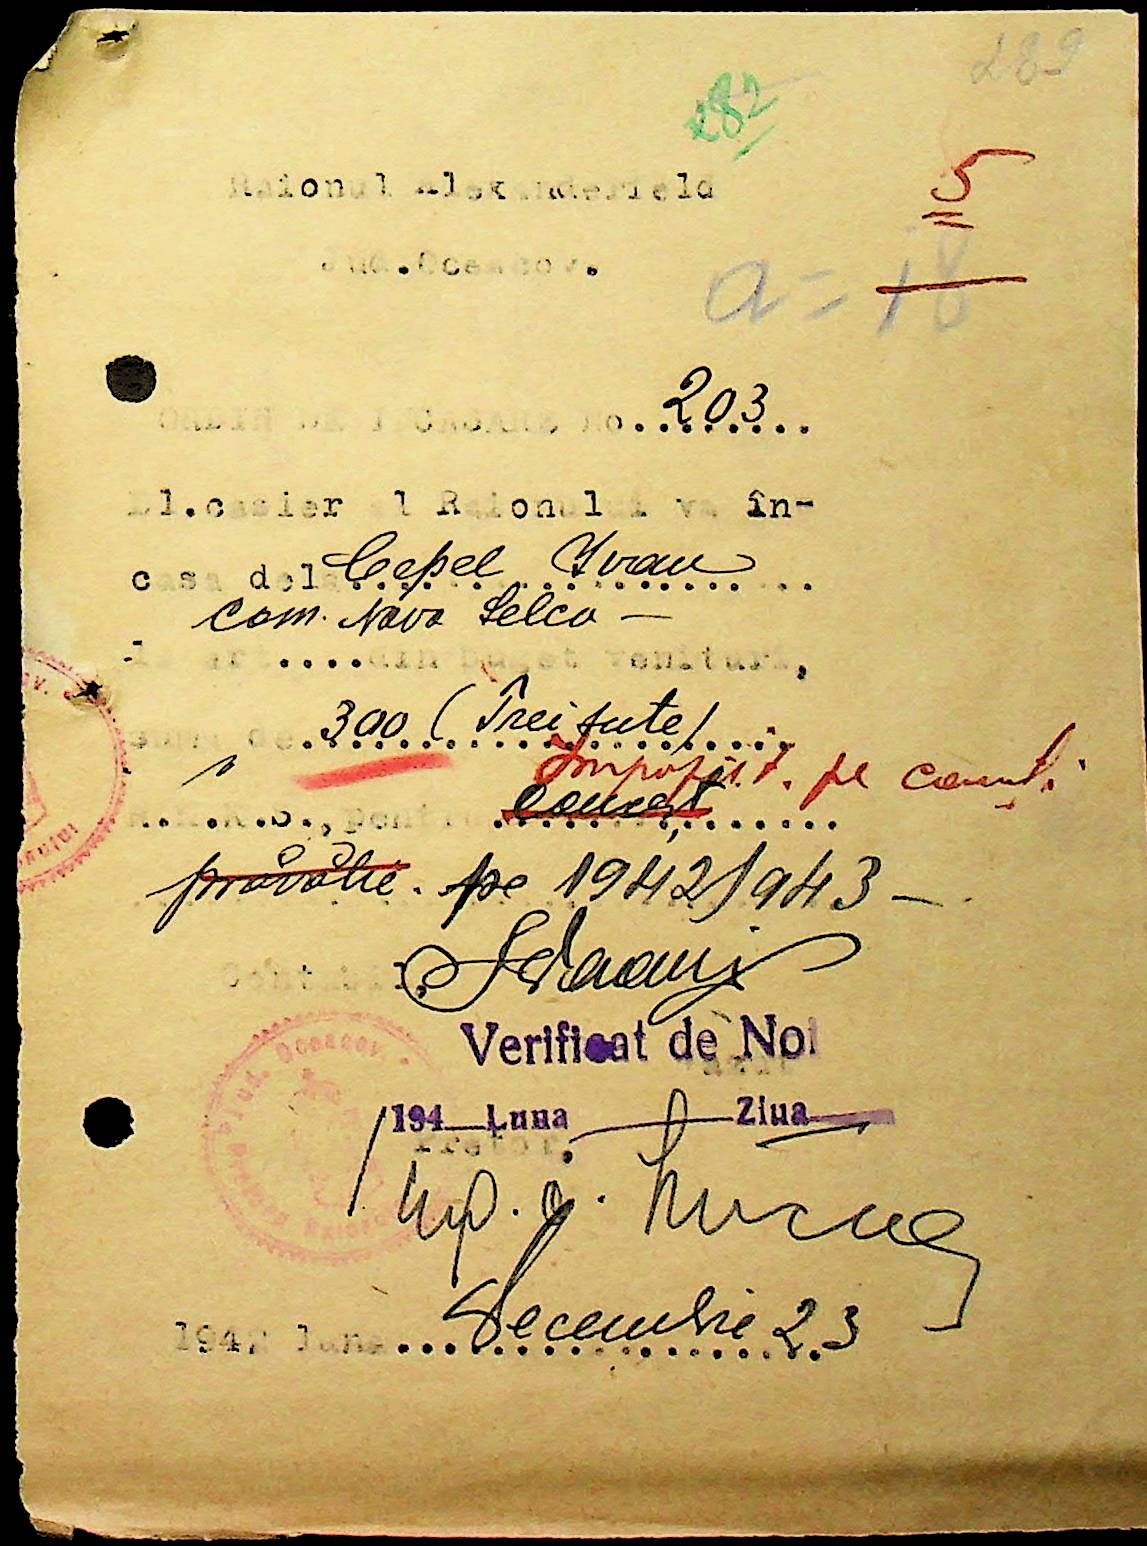 289
282
5
Raionul Alexanderfeld
Jud.Oceacov.
a = 18
ORDIN DE INCASARE No. 203
Dl.casier al Raionului va în-
casa dela Cepel Ivan
com. Novo Selca —
la art....din buget venituri,
suma de 300 (Trei sute)
Impozit. pe
R.K.K.S., pentru
pe 1942/943 —
Contabil,
Verificat de Noi
194 Luna Ziua
Pretor,
1942 luna Decembrie 23
Jud. Oceacov.